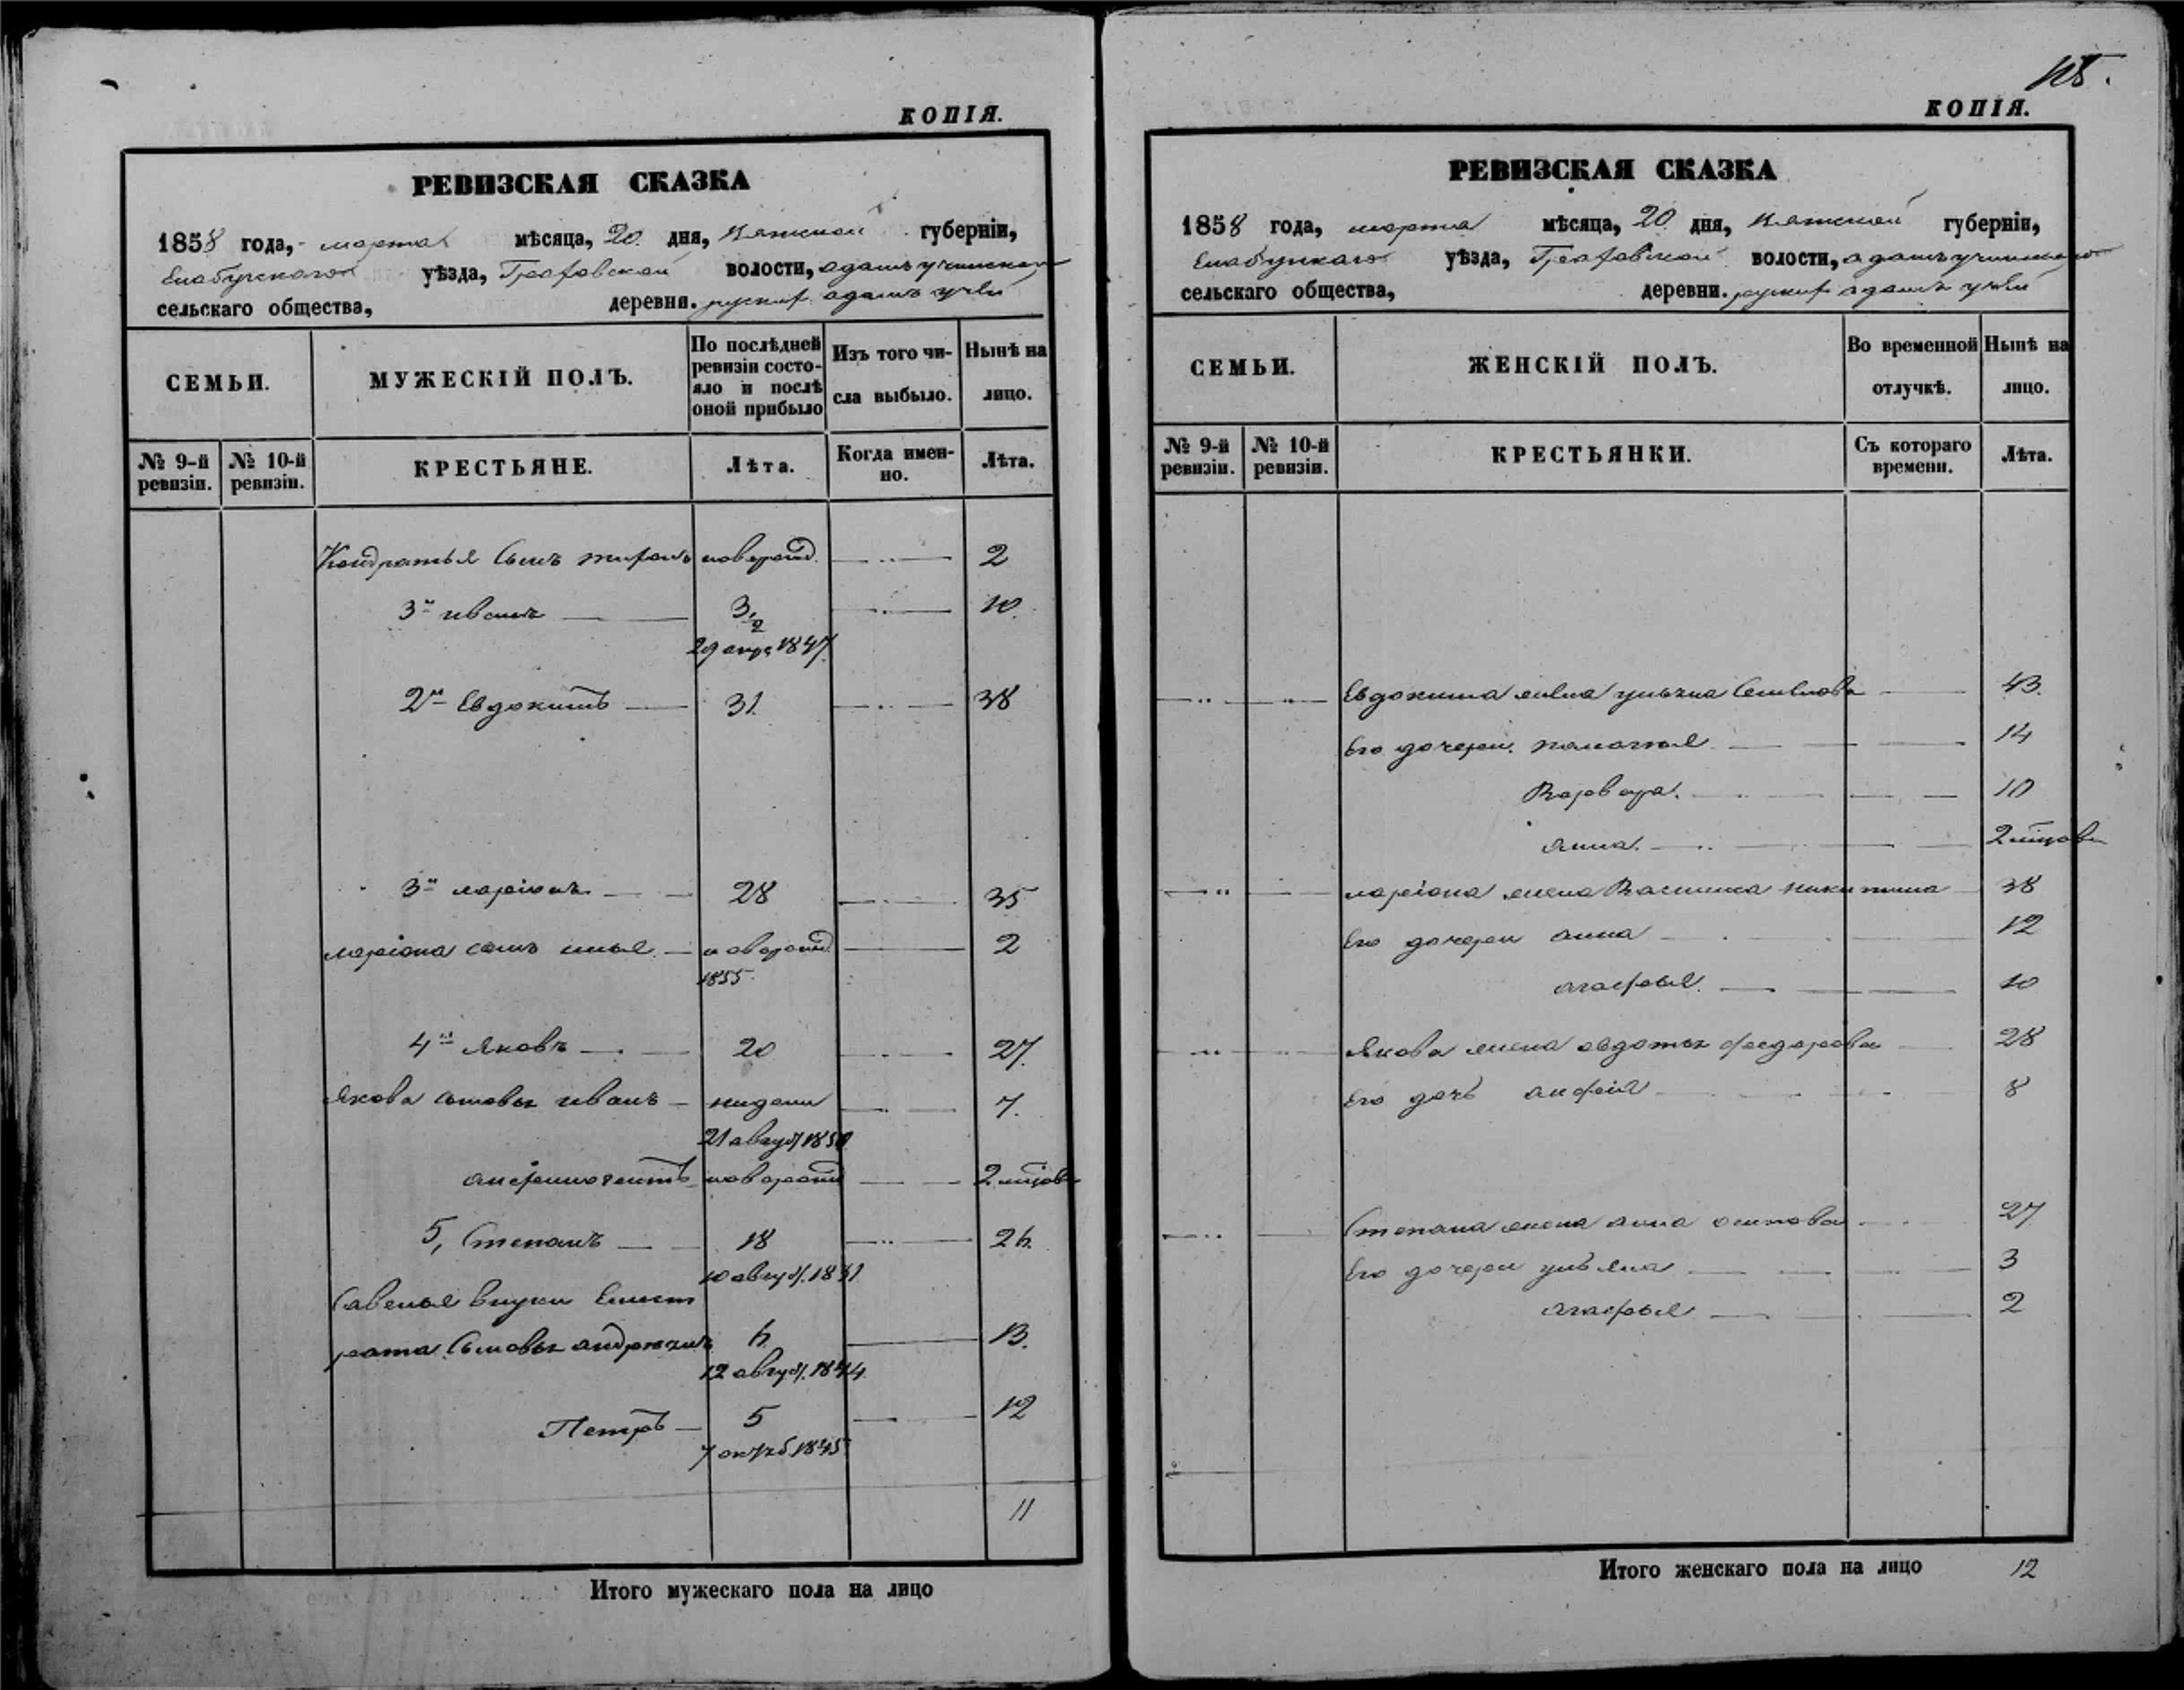 КОПІЯ.
РЕВИЗСКАЯ СКАЗКА
1858 года, марта мѣсяца, 20 дня, Вятской губерніи,
Елабужскаго уѣзда, Граховской волости,
сельскаго общества, деревни.
СЕМЬИ.
МУЖЕСКІЙ ПОЛЪ.
По послѣдней ревизіи состо-
яло и послѣ
оной прибыло
Изъ того чи-
сла выбыло.
Нынѣ на
лицо.
№ 9-й ревизіи.
№ 10-й ревизіи.
КРЕСТЬЯНЕ.
Лѣта.
Когда имен-
но.
Лѣта.
Кондратья сынъ новорожд. 2
3й иванъ 3 1/2 10.
29 1847.
2й Евдокимъ 31. 38
3й ларіонъ 28 35
ларіона сынъ илья новорожд 2
1855.
4й Яковъ 20 27.
Якова сыновья иванъ недели 7.
21 август 1850
новорожд 2 мѣсяцов
5, Степанъ 18 26.
10 август. 1831
Савелья внуки
сыновья 6 13.
12 август. 1844.
Петръ 5 12
7 октяб 1845
11
Итого мужескаго пола на лицо
115.
КОПІЯ.
РЕВИЗСКАЯ СКАЗКА
1858 года, марта мѣсяца, 20 дня, Вятской губерніи,
Елабужскаго уѣзда, Граховской волости,
сельскаго общества, деревни.
СЕМЬИ.
ЖЕНСКІЙ ПОЛЪ.
Во временной
отлучкѣ.
Нынѣ на
лицо.
№ 9-й ревизіи.
№ 10-й ревизіи.
КРЕСТЬЯНКИ.
Съ котораго
времени.
Лѣта.
Евдокима жена 43.
Его дочери 14
Варвара. 10
анна. 2 мѣсяцов
ларіона жена Василиса никитина 38
Его дочери анна 12
агафья. 10
Якова жена авдотья федорова 28
Его дочь 8
Степана жена анна осипова 27
Его дочери ульяна 3
агафья 2
Итого женскаго пола на лицо 12